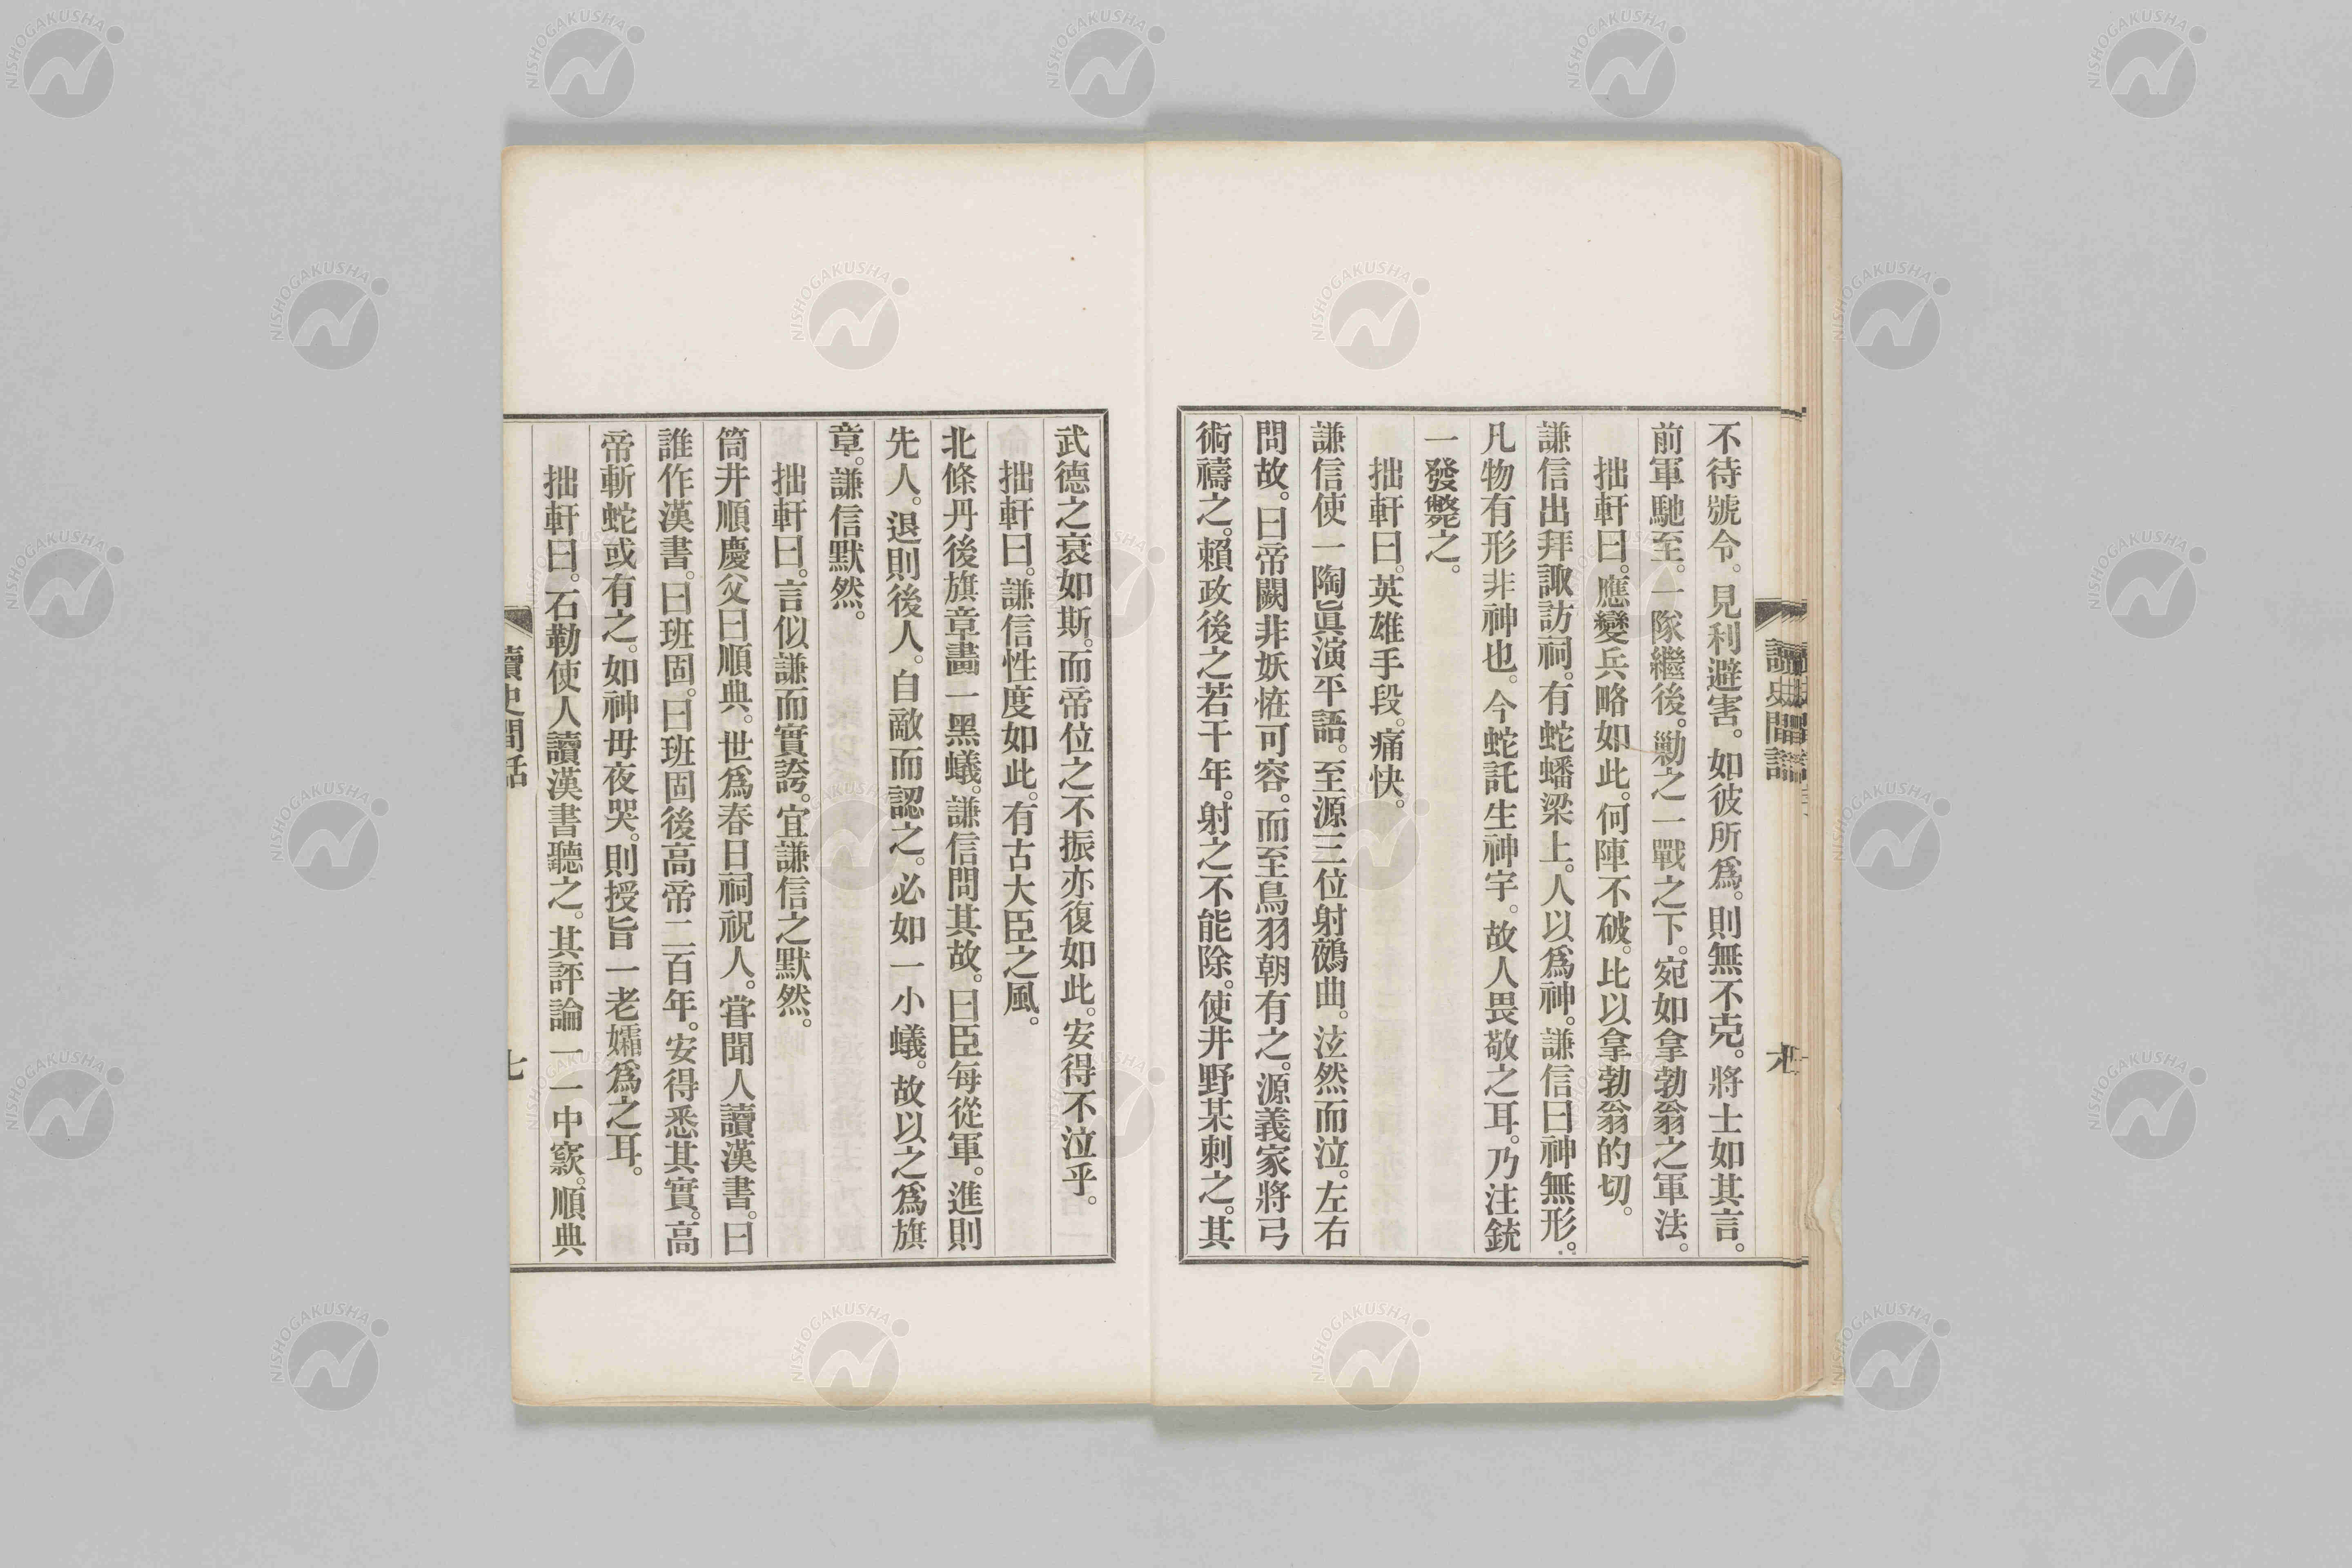 讀史閒話
不待號令。見利避害。如彼所爲。則無不克。將士如其言。
前軍馳至。一隊繼後。勦之一戰之下。宛如拿勃翁之軍法。
拙軒曰。應變兵略如此。何陣不破。比以拿勃翁的切。
謙信出拜諏訪祠。有蛇蟠梁上。人以爲神。謙信曰神無形。
凡物有形非神也。今蛇託生神宇。故人畏敬之耳。乃注銃
一發斃之。
拙軒曰。英雄手段。痛快。
謙信使一陶眞演平語。至源三位射鵺曲。泫然而泣。左右
問故。曰帝闕非妖恠可容。而至鳥羽朝有之。源義家將弓
術禱之。賴政後之若干年。射之不能除。使井野某刺之。其
武德之衰如斯。而帝位之不振亦復如此。安得不泣乎。
拙軒曰。謙信性度如此。有古大臣之風。
北條丹後旗章畵一黑蟻。謙信問其故。曰臣每從軍。進則
先人。退則後人。自敵而認之。必如一小蟻。故以之爲旗
章。謙信默然。
拙軒曰。言似謙而實誇。宜謙信之默然。
筒井順慶父曰順典。世爲春日祠祝人。甞聞人讀漢書。曰
誰作漢書。曰班固。曰班固後高帝二百年。安得悉其實。高
帝斬蛇或有之。如神毋夜哭。則授旨一老孀爲之耳。
拙軒曰。石勒使人讀漢書聽之。其評論一一中窾。順典
讀史閒話
七
NISHOGAKUSHA